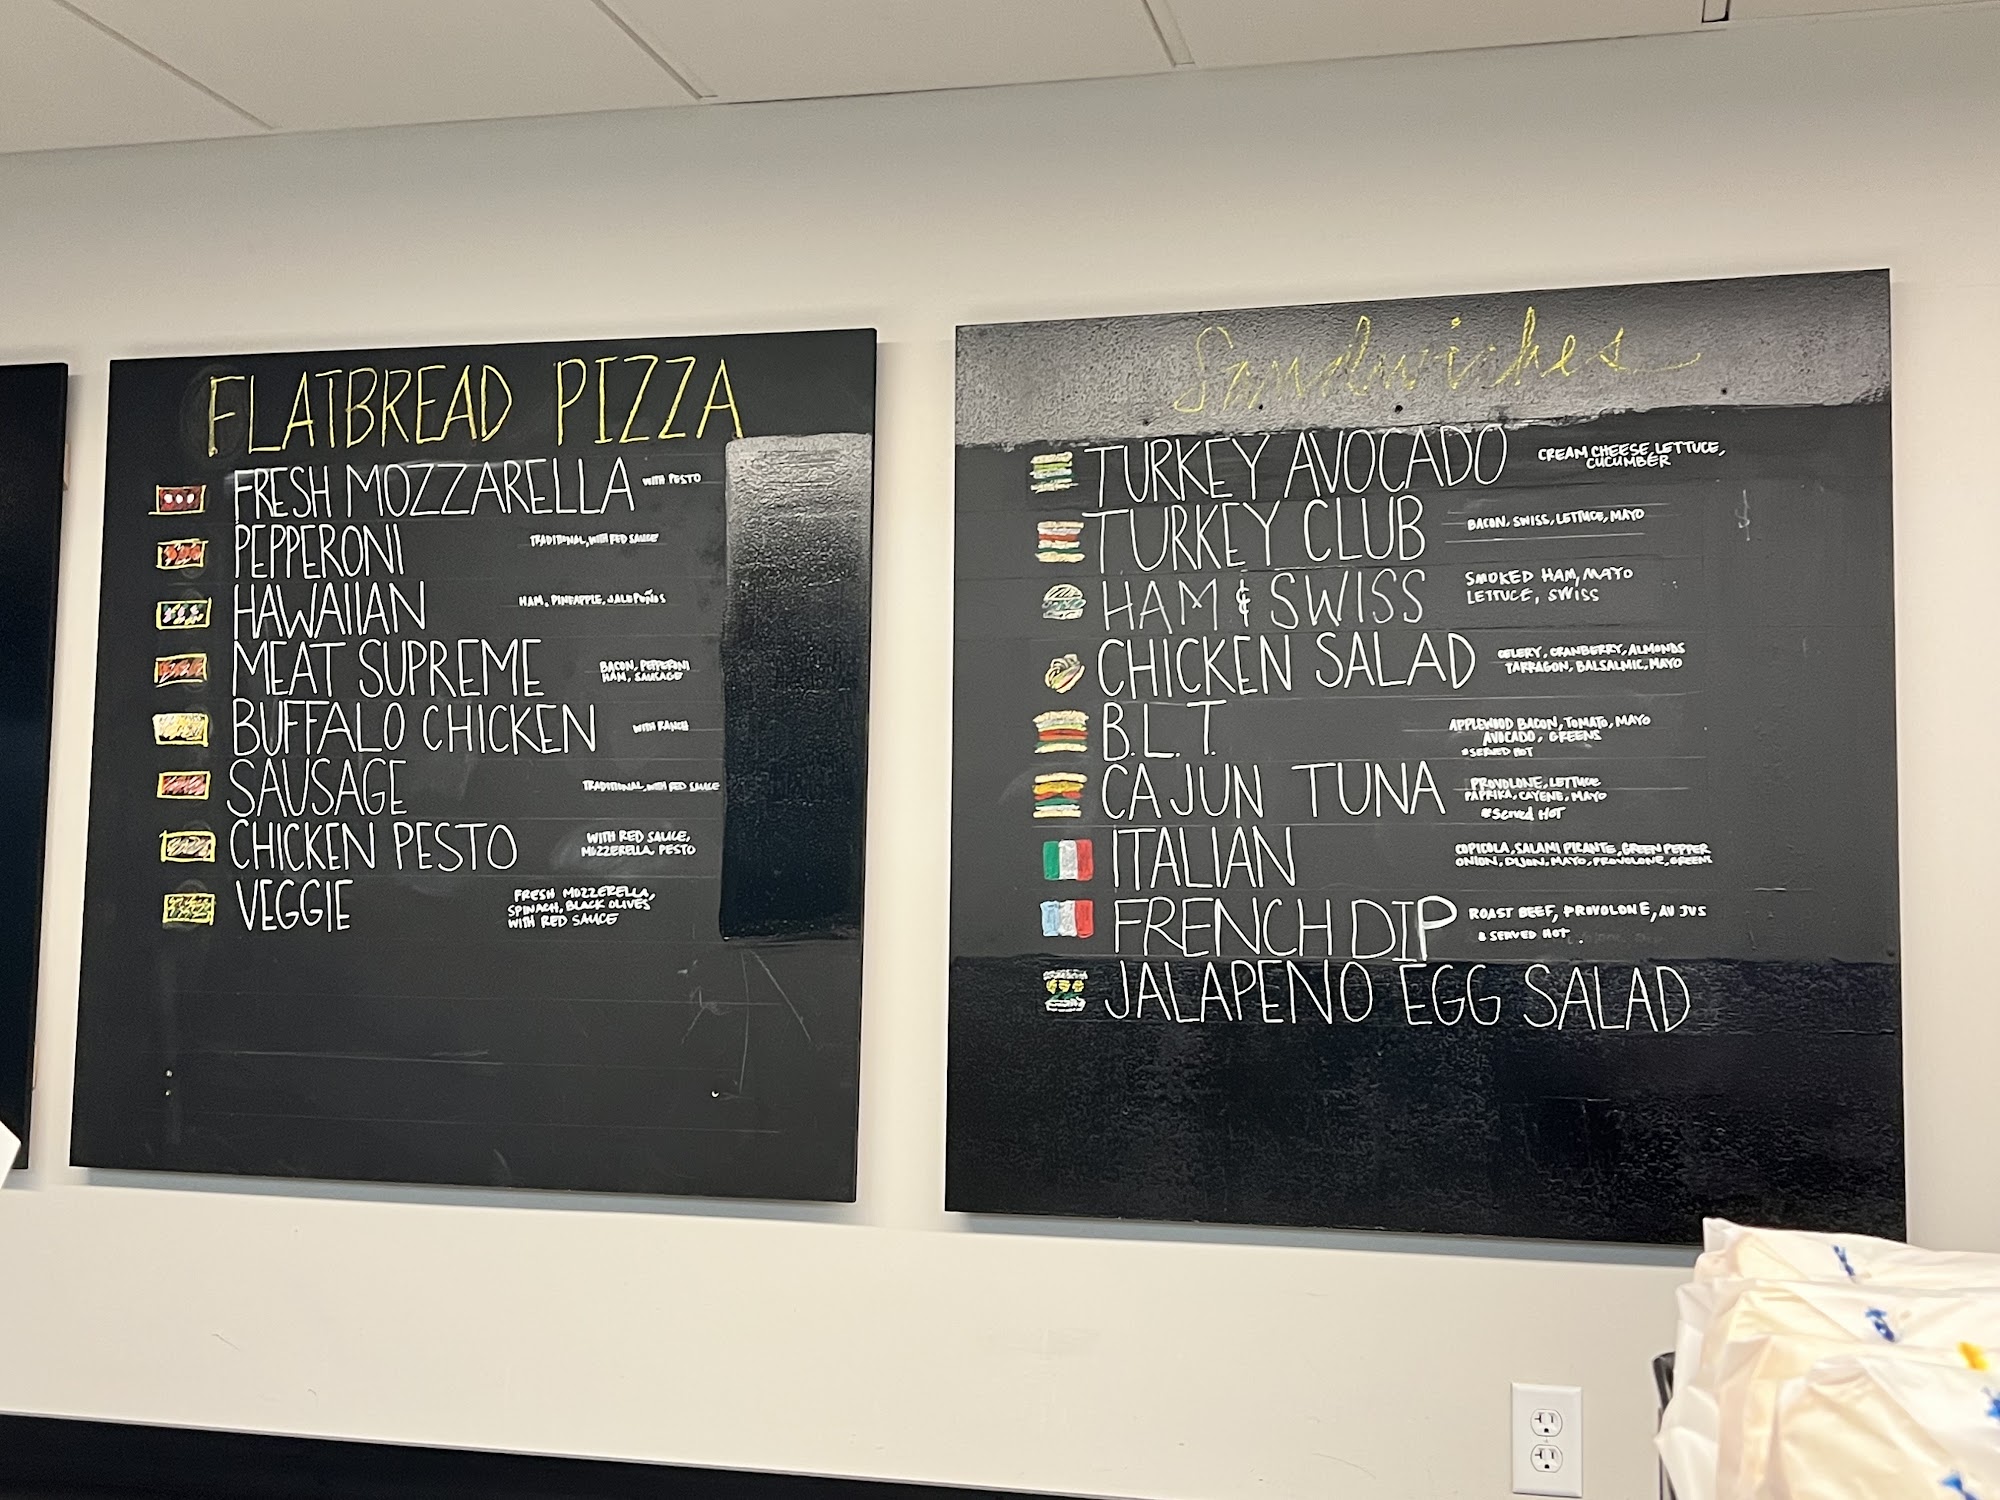 FLATBREAD PIZZA
FRESH MOZZARELLA WITH PESTO
PEPPERONI TRADITIONAL, WITH RED SAUCE
HAWAIIAN HAM, PINEAPPLE, JALEPEÑOS
MEAT SUPREME BACON, PEPPERONI
HAM, SAUSAGE
BUFFALO CHICKEN WITH RANCH
SAUSAGE TRADITIONAL, WITH RED SAUCE
CHICKEN PESTO WITH RED SAUCE,
MOZZERELLA, PESTO
VEGGIE FRESH MOZZERELLA,
SPINACH, BLACK OLIVES
WITH RED SAUCE
Sandwiches
TURKEY AVOCADO CREAM CHEESE, LETTUCE,
CUCUMBER
TURKEY CLUB BACON, SWISS, LETTUCE, MAYO
HAM & SWISS SMOKED HAM, MAYO
LETTUCE, SWISS
CHICKEN SALAD CELERY, CRANBERRY, ALMONDS
TARRAGON, BALSALMIC, MAYO
B.L.T. APPLEWOOD BACON, TOMATO, MAYO
AVOCADO, GREENS
*SERVED HOT
CAJUN TUNA PROVOLONE, LETTUCE
PAPRIKA, CAYENE, MAYO
*Served HOT
ITALIAN COPICOLA, SALAMI PICANTE, GREEN PEPPER
ONION, DIJON, MAYO, PROVOLONE, GREENS
FRENCH DIP ROAST BEEF, PROVOLONE, AU JUS
* SERVED HOT
JALAPENO EGG SALAD